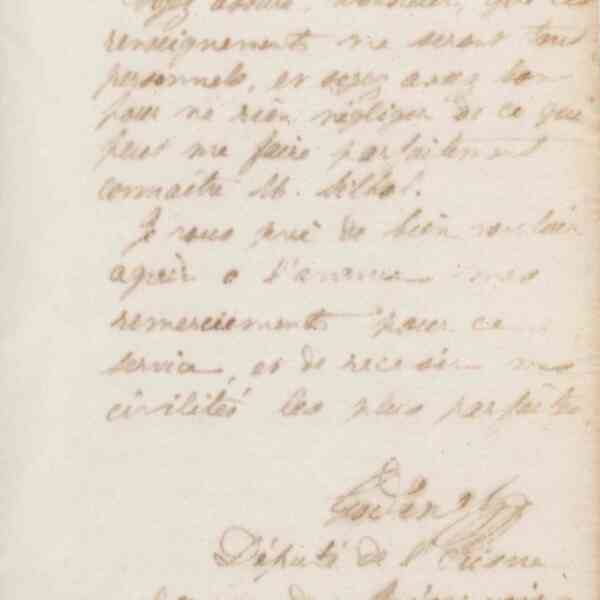 Soyez assuré, Monsieur, que ces
renseignements ne seront tout
personnels, et soyez assez bon
pour ne rien négliger de ce qui
peut me faire parfaitement
connaître M. Silhol.
Je vous prie de bien vouloir
agréer à l'avance mes
remerciements pour ce
service, et de recevoir mes
civilités les plus parfaites.
Godin
Député de l'Aisne